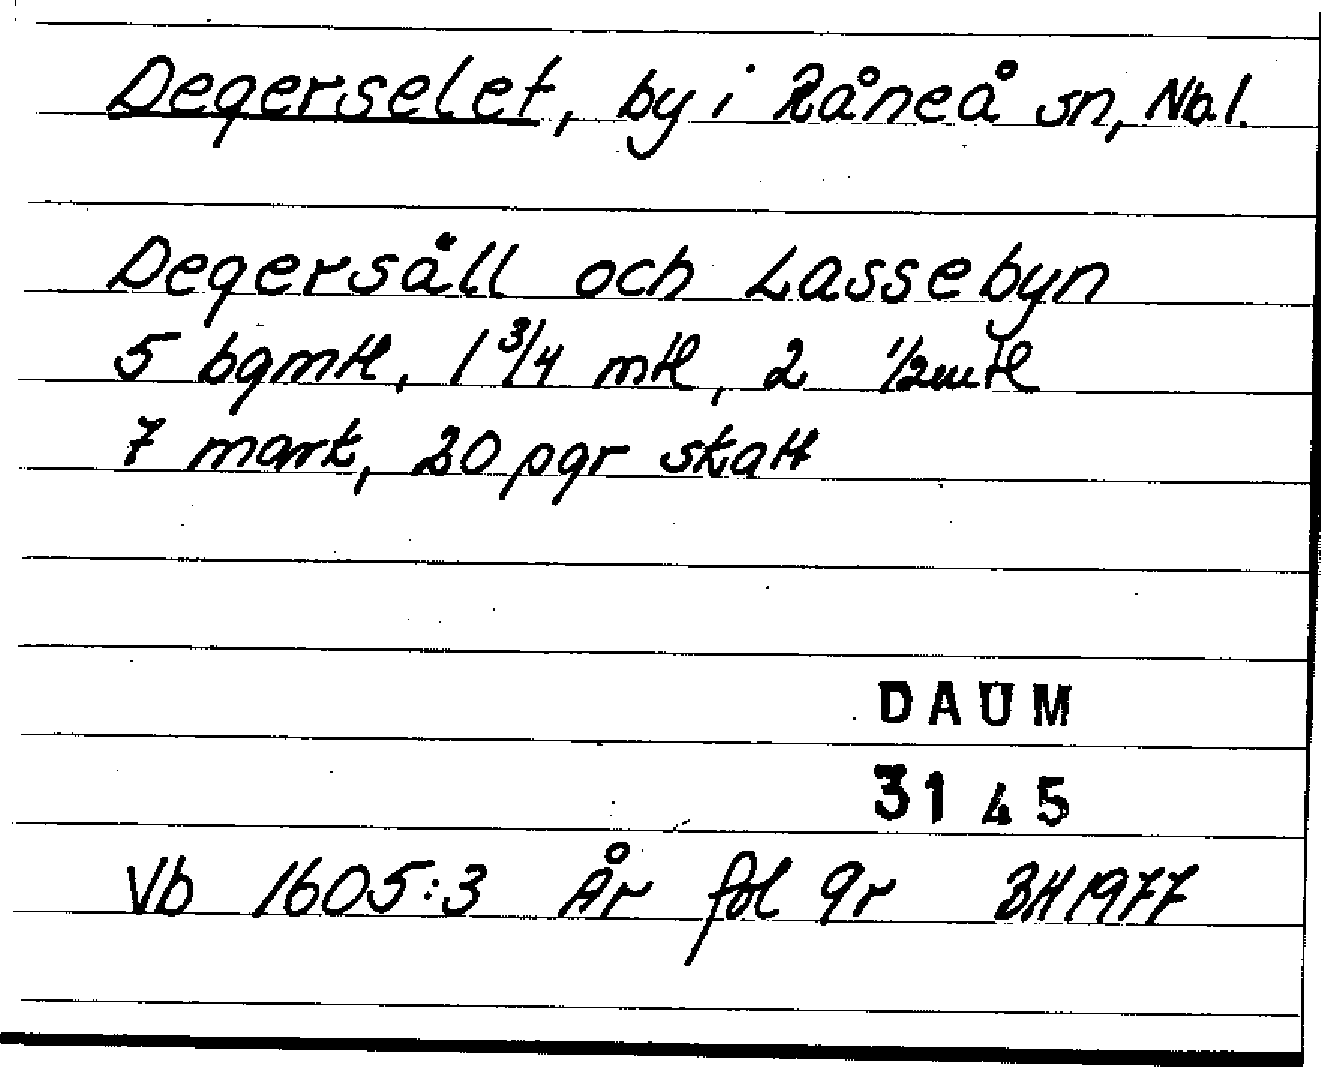 Degerselet, by i Råneå sn, Nb l.
Degersåll och Lassebyn
5 bgmtl, 1 3/4 mtl, 2 1/2 mtl
7 mark, 20 pgr skatt
DAUM
3145
Vb 1605:3 År fol 9r BH 1977